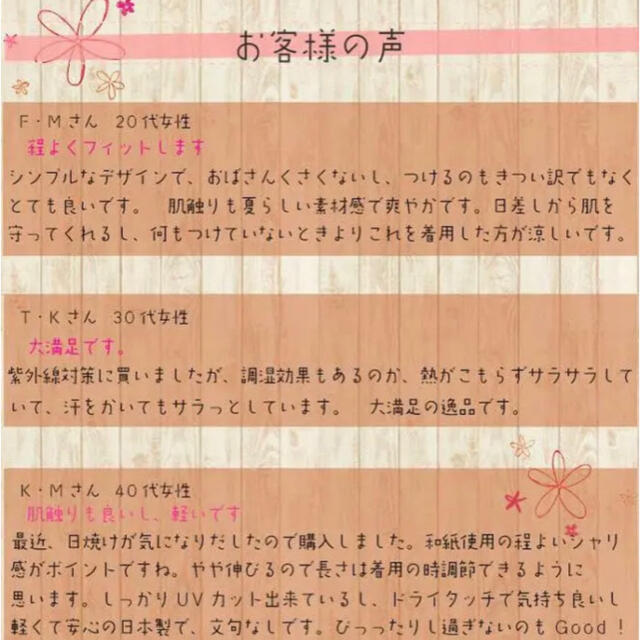 お客様の声
F・Mさん 20代女性
程よくフィットします
シンプルなデザインで、おばさんくさくないし、つけるのもきつい訳でもなく
とても良いです。 肌触りも夏らしい素材感で爽やかです。日差しから肌を
守ってくれるし、何もつけていないときよりこれを着用した方が涼しいです。
T・Kさん 30代女性
大満足です。
紫外線対策に買いましたが、調湿効果もあるのか、熱がこもらずサラサラして
いて、汗をかいてもサラっとしています。 大満足の逸品です。
K・Mさん 40代女性
肌触りも良いし、軽いです
最近、日焼けが気になりだしたので購入しました。和紙使用の程よいシャリ
感がポイントですね。やや伸びるので長さは着用の時調節できるように
思います。しっかりUVカット出来ているし、ドライタッチで気持ち良いし
軽くて安心の日本製で、文句なしです。ぴっったりし過ぎないのもGood！